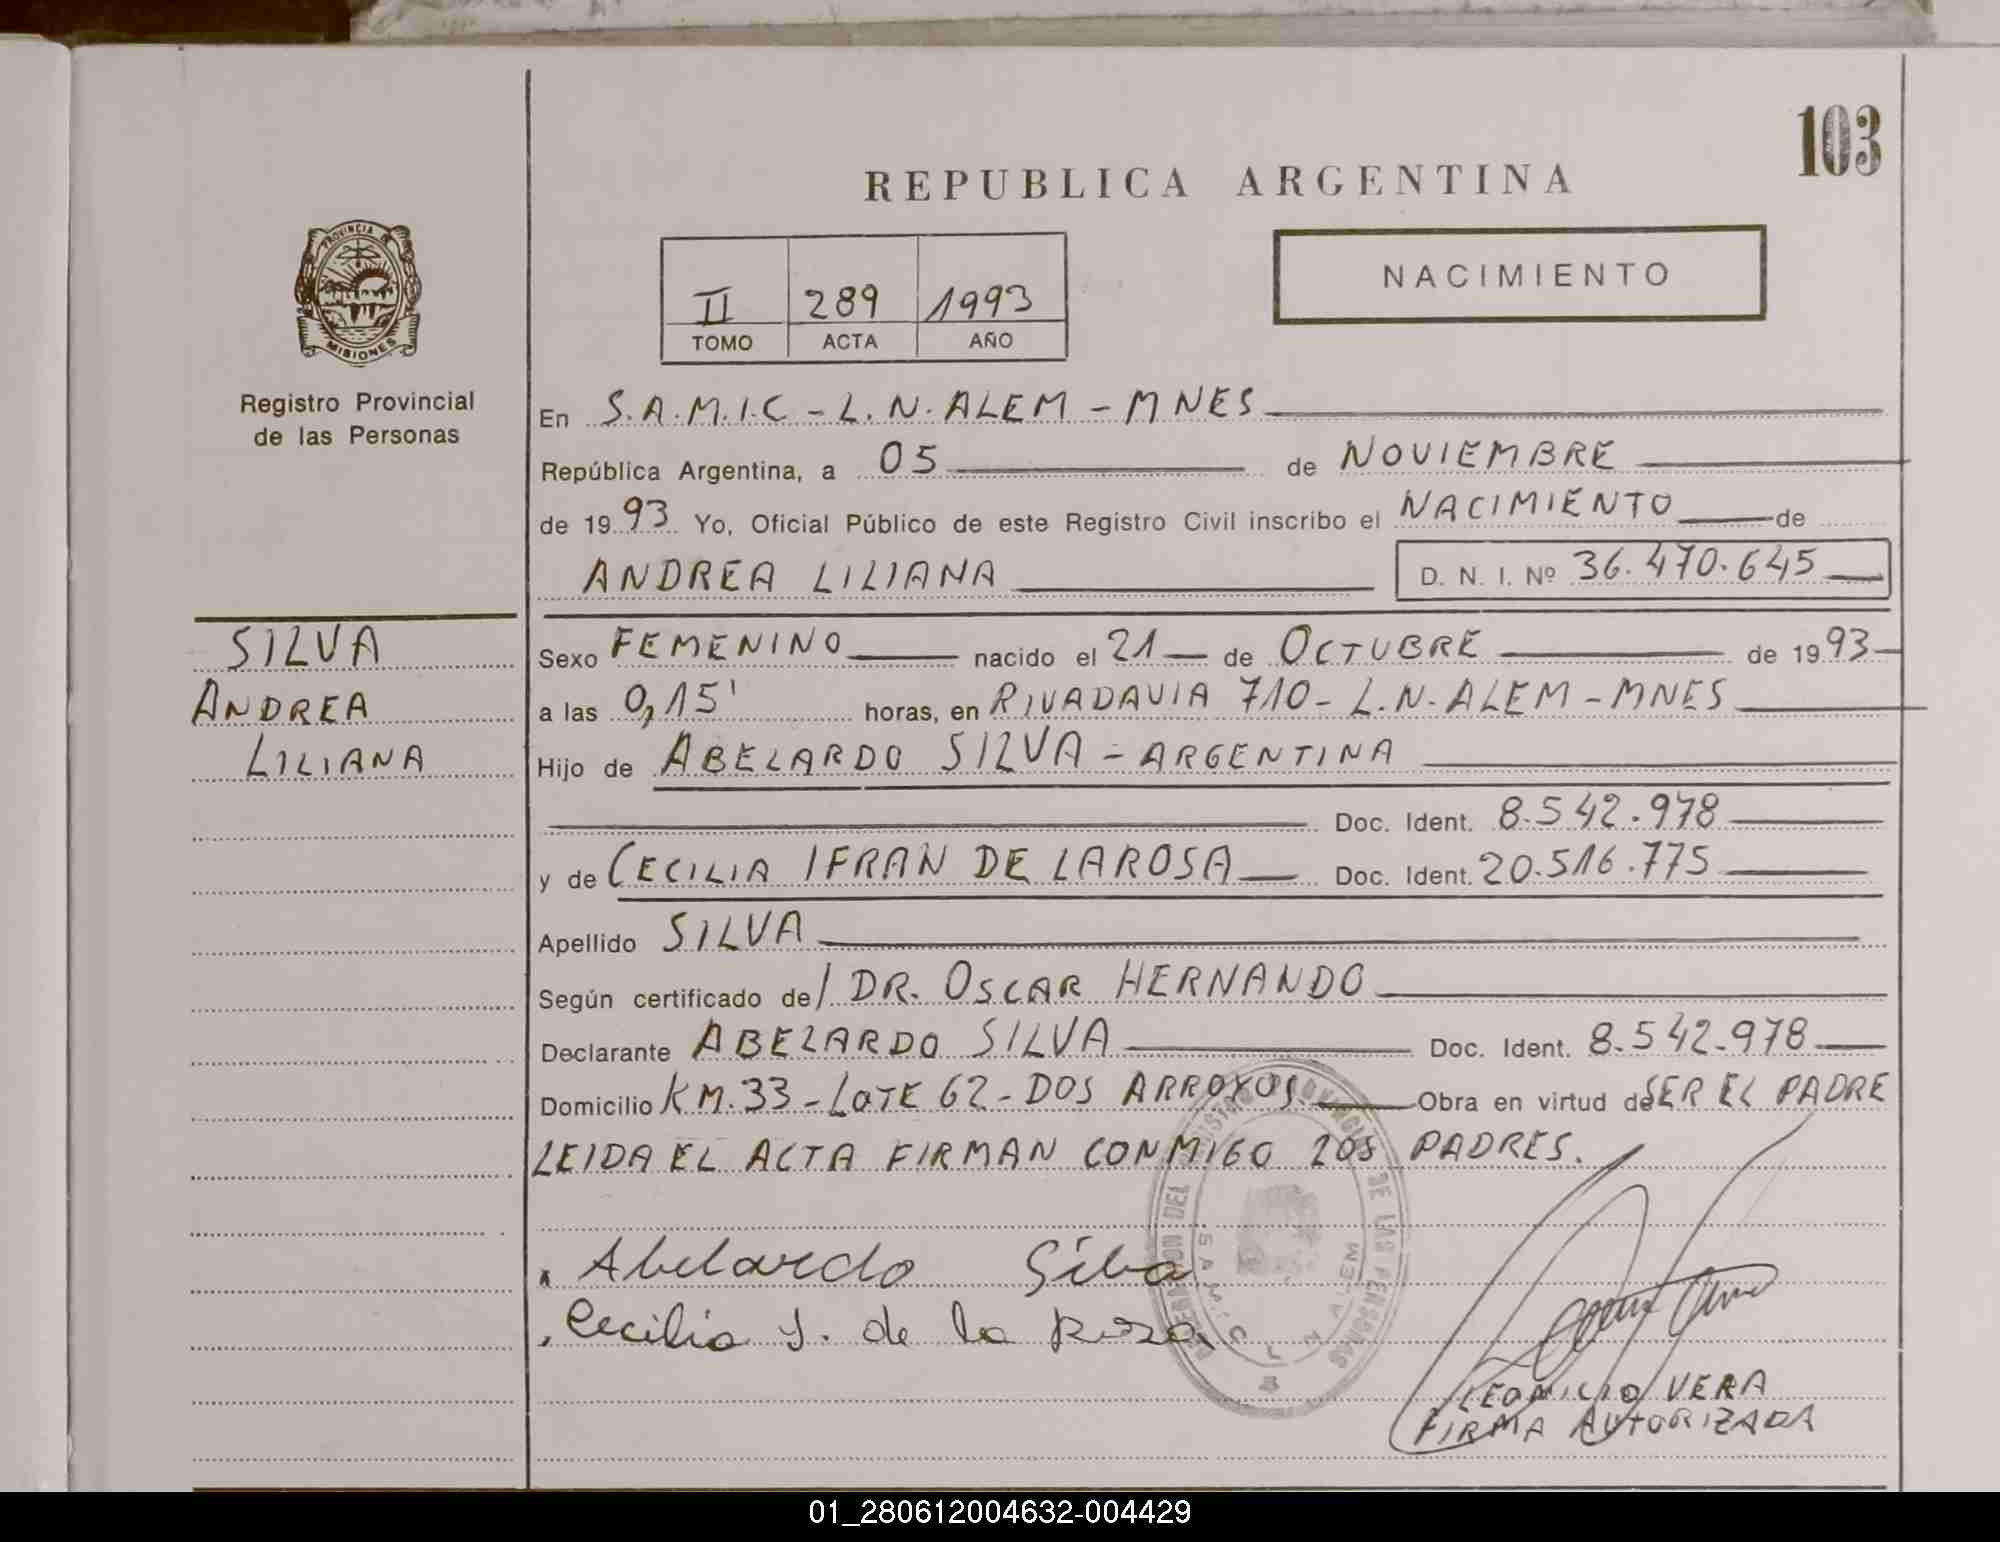 103
REPUBLICA ARGENTINA
PROVINCIA DE
MISIONES
Registro Provincial
de las Personas
NACIMIENTO
II 289 1993
TOMO ACTA AÑO
En S.A.M.I.C - L.N. ALEM - MNES
República Argentina, a 05 de NOVIEMBRE
de 1993 Yo, Oficial Público de este Registro Civil inscribo el NACIMIENTO de
ANDREA LILIANA D. N. I. Nº 36.470.645
SILVA
ANDREA
LILIANA
Sexo FEMENINO nacido el 21 de OCTUBRE de 1993
a las 0,15' horas, en RIVADAVIA 710 - L.N. ALEM - MNES
Hijo de ABELARDO SILVA - ARGENTINA
Doc. Ident. 8.542.978
y de CECILIA IFRAN DE LAROSA Doc. Ident. 20.516.775
Apellido SILVA
Según certificado de/ DR. OSCAR HERNANDO
Declarante ABELARDO SILVA Doc. Ident. 8.542.978
Domicilio KM.33 - LOTE 62 - DOS ARROYOS. Obra en virtud de SER EL PADRE
LEIDA EL ACTA FIRMAN CONMIGO LOS PADRES.
Abelardo Silva
Cecilia I. de la Rosa
DE LAS PERSONAS
LEONICIO VERA
FIRMA AUTORIZADA
01_280612004632-004429